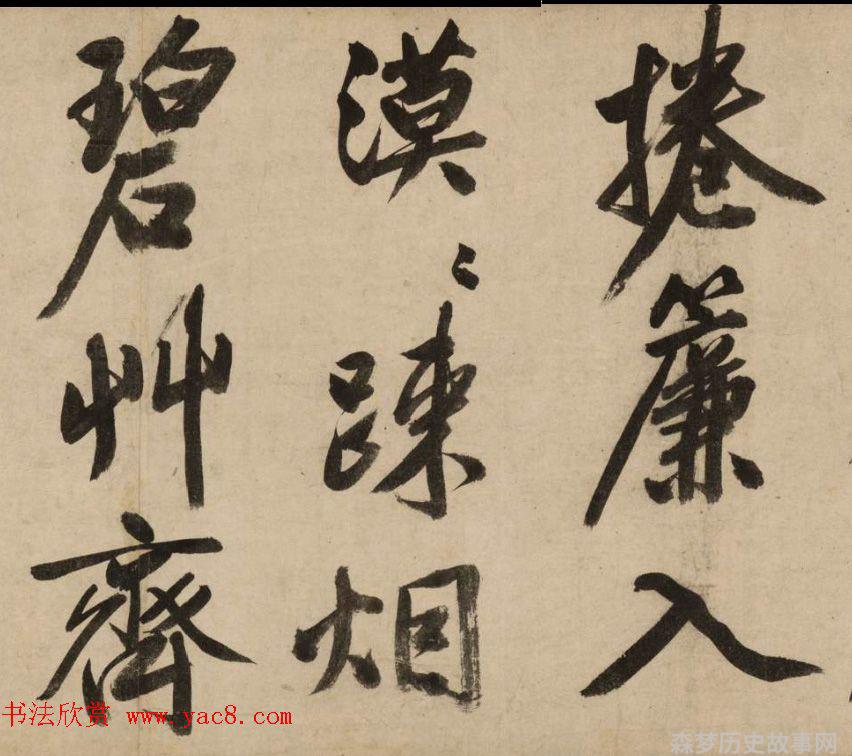 捲簾入
漠〻踈烟
碧艸齊
书法欣赏 www.yac8.com
森梦历史故事网